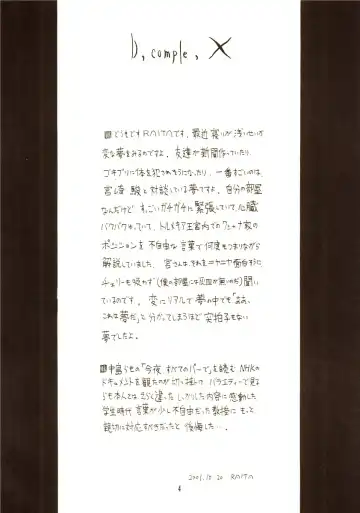 D, comple, X
■どうもですRAITAです。最近 寝りが浅いせいか
変な夢をみるのですよ。友達が新聞作っていたり、
ゴキブリに体を犯されそうになったり、一番すごいのは、
宮崎 駿と対談している夢ですよ。自分の部屋
なんだけど、すごいガチガチに緊張していて心臓
バクバクゆっていて、トルメキア王宮内でのクシャナ家の
ポジションを 不自由な言葉で何度もつまりながら
解説していました。宮さんは、それをニヤニヤ面白そうに
チェリーも吸わず(僕の部屋には灰皿が無いのだ)聞い
ているのです。変にリアルで夢の中でも「ああ、
これは夢だ」と分かってしまうほど突拍子もない
夢でしたよ。
■中島らもの「今夜、すべてのバーで」を読む NHKの
ドキュメントを観たのが
バラエティーで見る
らも本人とは まるく違った しっかりした内容に感動した
学生時代 言葉が少し不自由だった教授に もっと
親切に対応すべきだったと 後悔した…。
2001.12.20 RAITA
4